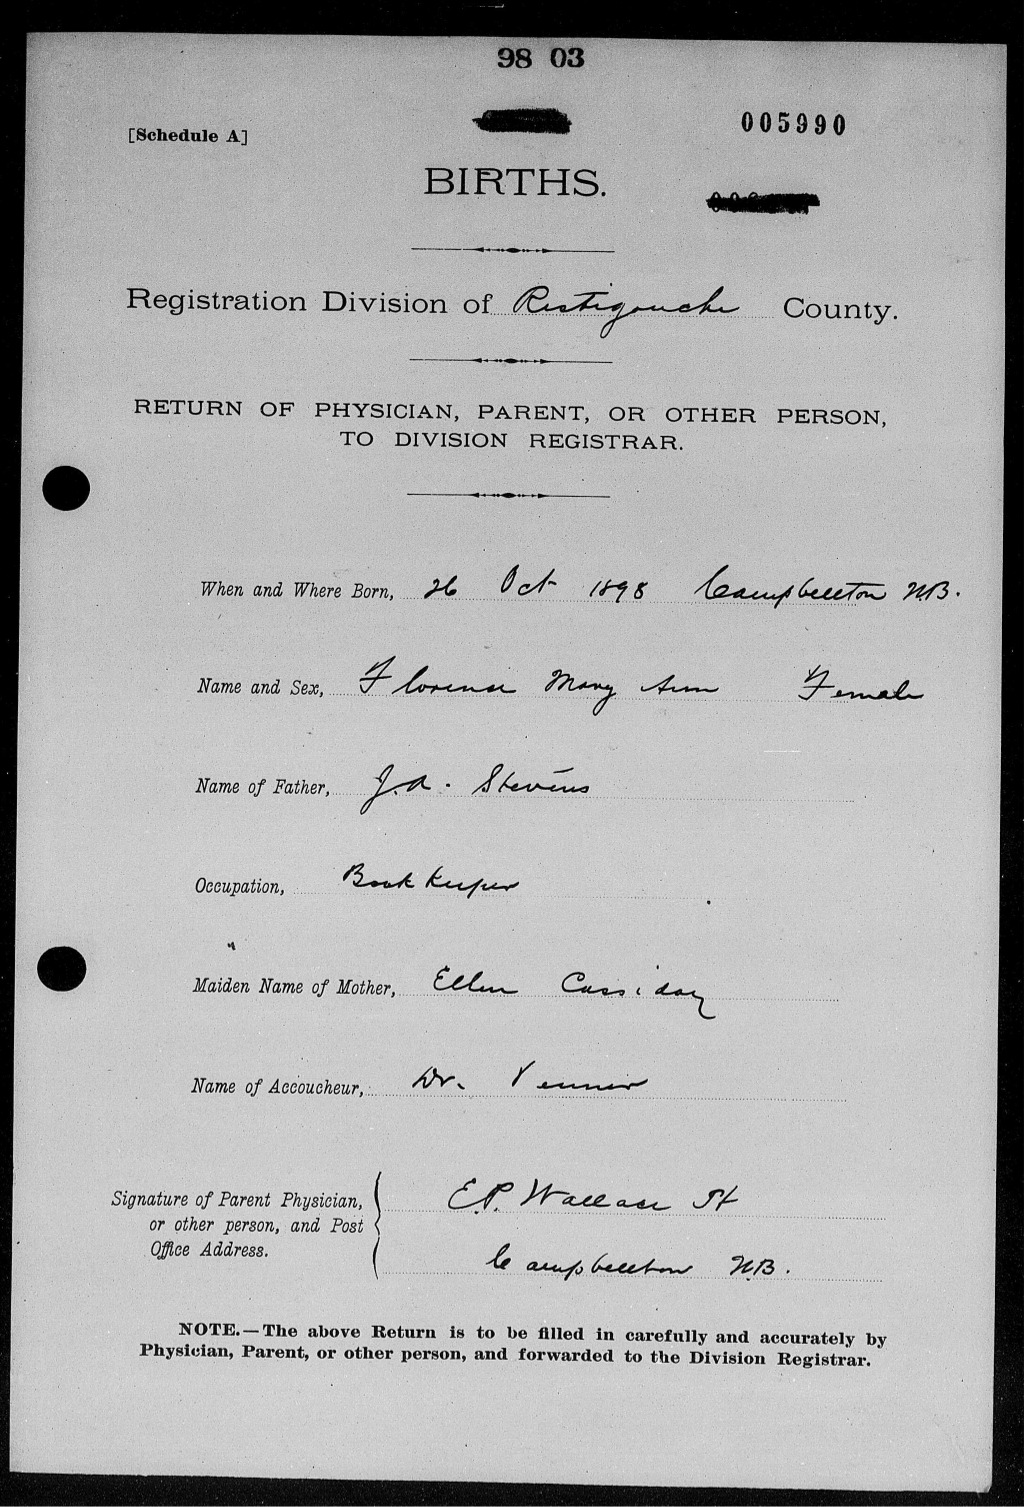 98 03
[Schedule A]
005990
BIRTHS.
Registration Division of Restigouche County.
RETURN OF PHYSICIAN, PARENT, OR OTHER PERSON,
TO DIVISION REGISTRAR.
When and Where Born, 26 Oct 1898 Campbellton N.B.
Name and Sex, Florence Mary Ann Female
Name of Father, J.A. Stevens
Occupation, Book Keeper
Maiden Name of Mother, Ellen Cassiday
Name of Accoucheur, Dr. Venner
Signature of Parent Physician, E.P. Wallace
or other person, and Post
Office Address.
Campbellton N.B.
NOTE.—The above Return is to be filled in carefully and accurately by
Physician, Parent, or other person, and forwarded to the Division Registrar.